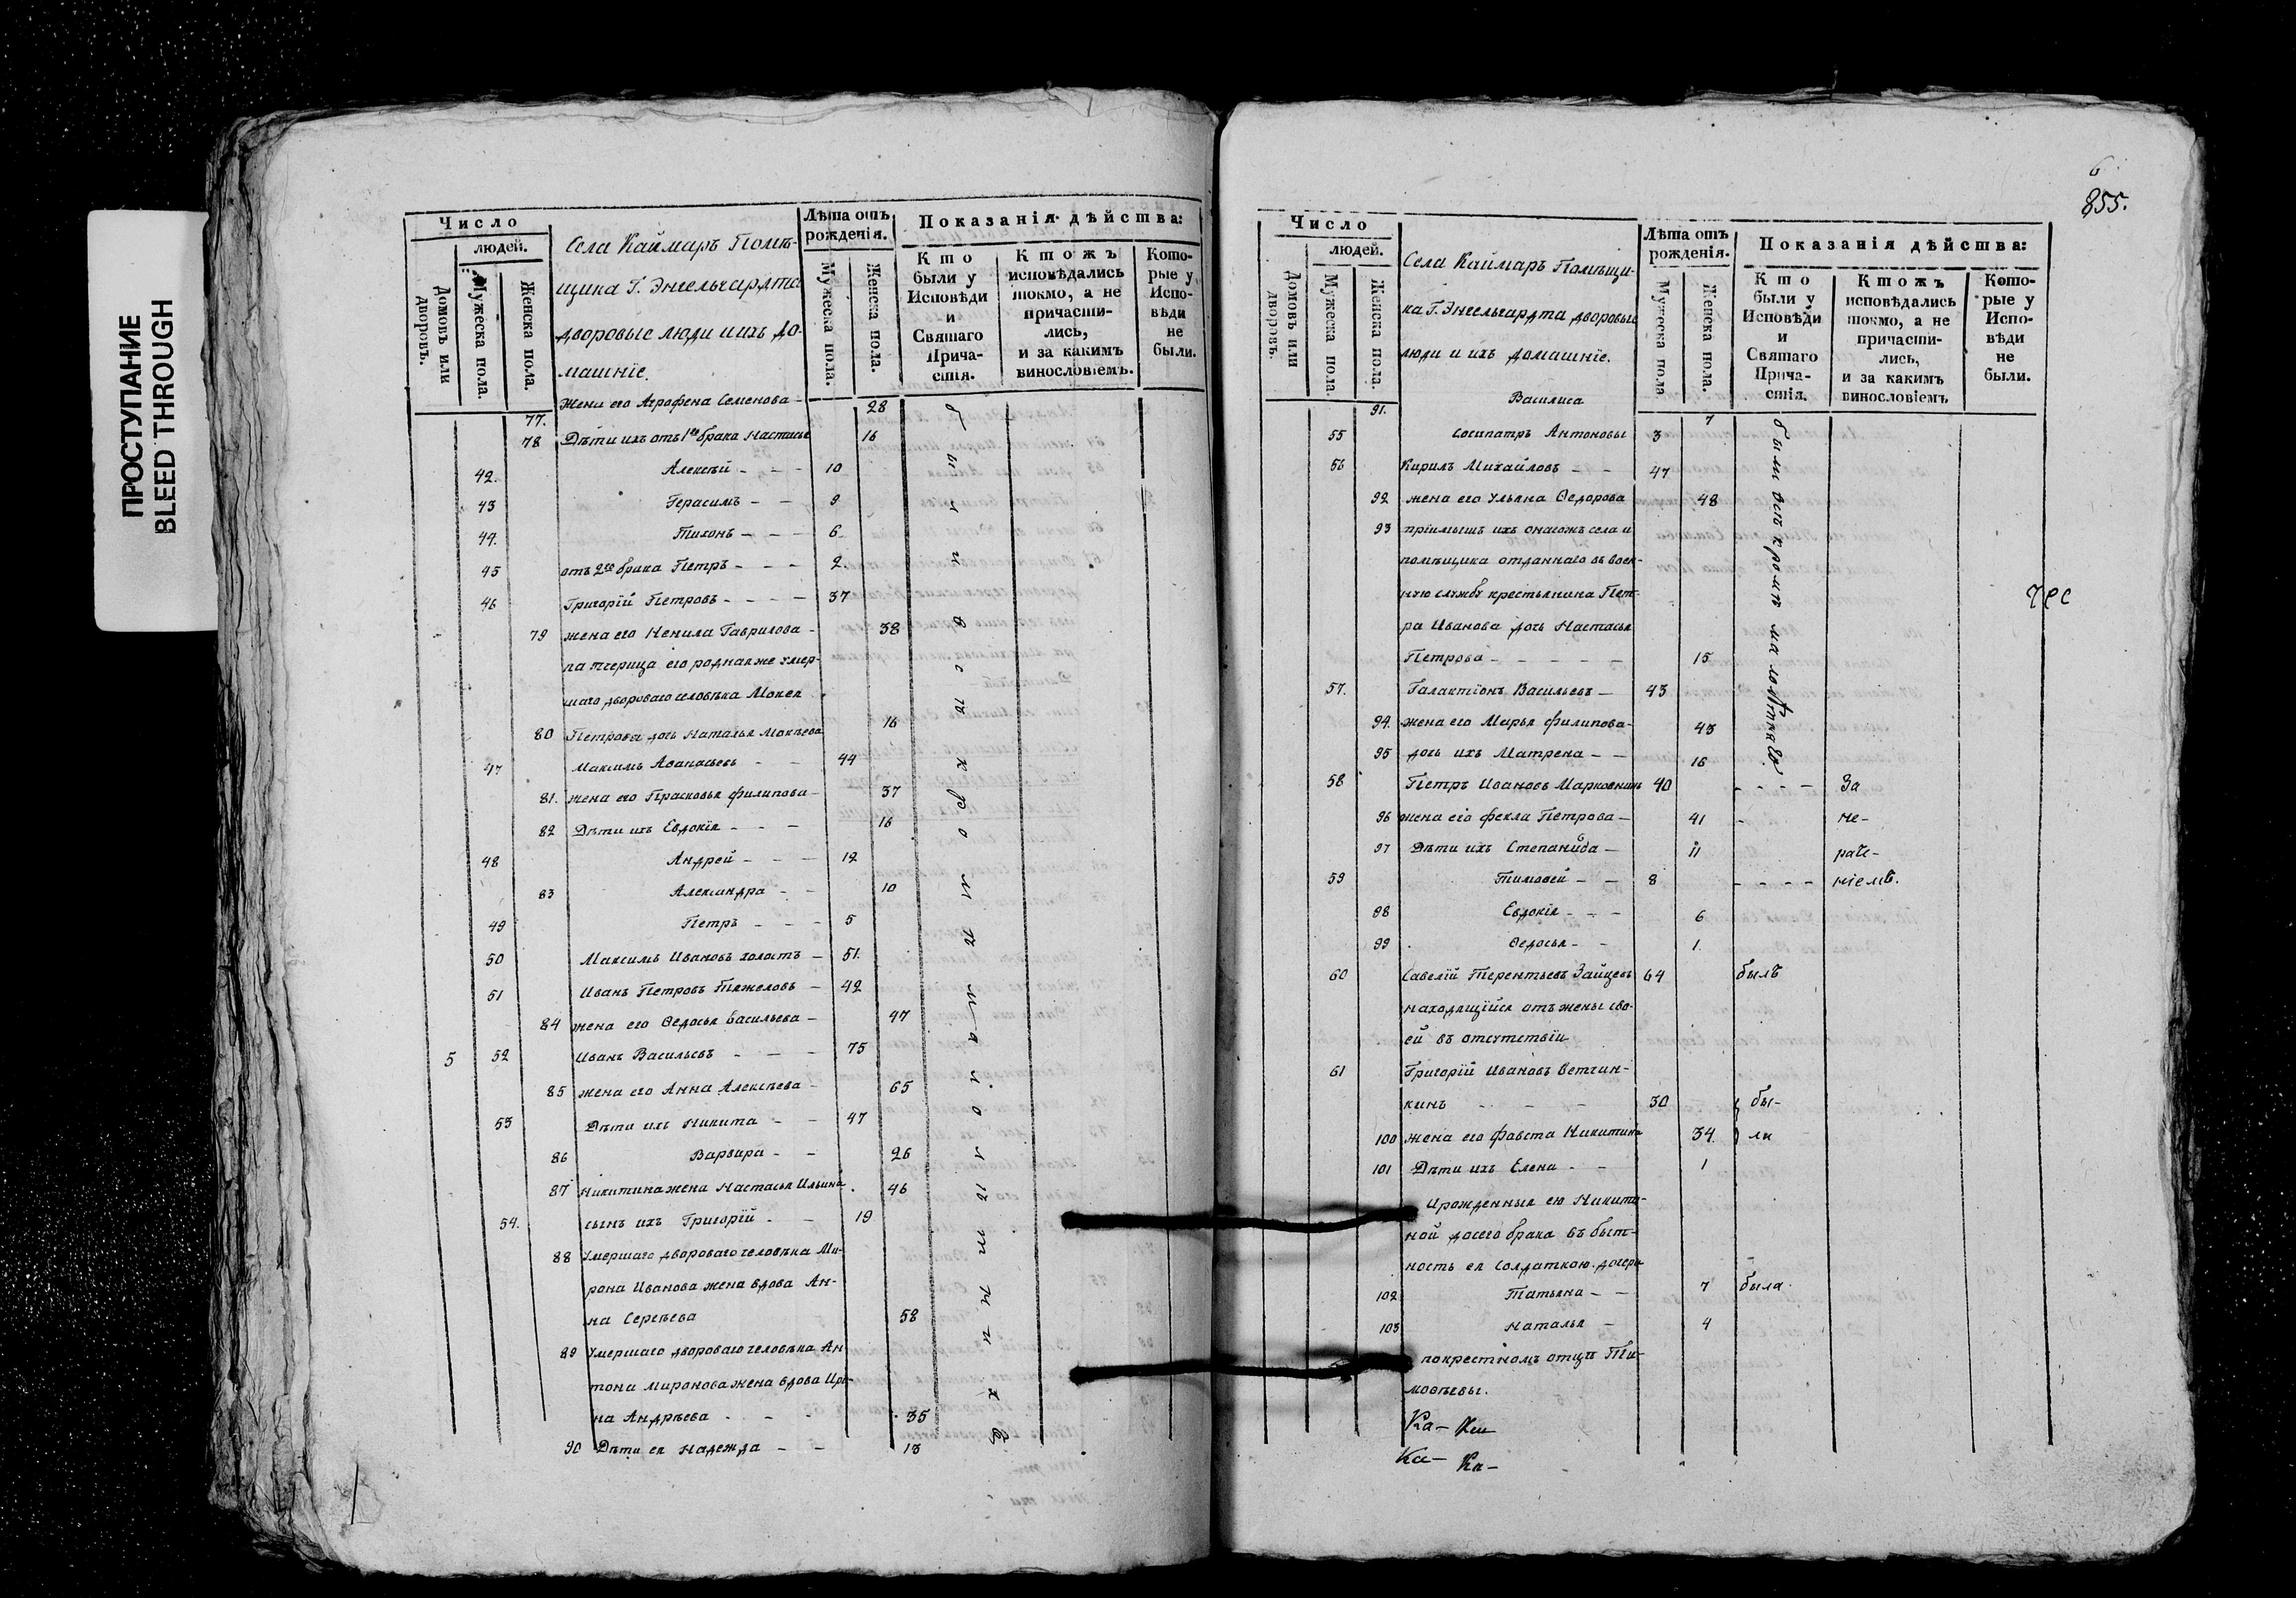 ПРОСТУПАНИЕ
BLEED THROUGH
Число
людей.
Домовъ или дворовъ.
Мужеска пола.
Женска пола.
Села Каймаръ Помѣ-
щика Г. Энгельгардта
дворовые люди и ихъ до-
машніе.
Лѣта отъ рожденія.
Мужеска пола.
Женска пола.
Показанія дѣйства:
Кто были у Исповѣди и Святаго Прича-стія.
Ктожъ исповѣдались токмо, а не причасти-лись, и за какимъ винословіемъ.
Кото-рые у Испо-вѣди не были.
77. Жена его Аграфена Семенова - 28
78 Дѣти ихъ отъ 1го брака Настасья 16
42. Алексѣй - - - 10
43 Герасимъ - - 9
44. Тихонъ - - - 6
45 отъ 2го брака Петръ - - - 2.
46 Григорій Петровъ - - - - 37
79 жена его Ненила Гаврилова - 38
падчерица его роднаяже умер-
шаго двороваго человѣка Мокея
80 Петрова дочь Наталья Мокѣева 16
47 Максимъ Аѳанасьевъ - - 44
81. жена его Прасковья Филипова - 37
82 Дѣти ихъ Евдокія - - - 16
48 Андрей - - - 12
83 Александра - - 10
49 Петръ - - - 5
50 Максимъ Ивановъ холостъ - 51.
51 Иванъ Петровъ Тяжеловъ - 42
84 жена его Ѳедосья Васильева - 47
5 52 Иванъ Васильевъ - - - 75
85 жена его Анна Алексѣева - 65
53 Дѣти ихъ Никита - - 47
86 Варвара - - 26
87 Никитина жена Настасья Ильина 46
54. сынъ ихъ Григорій - - 19
88 Умершаго двороваго человѣка Ми-
рона Иванова жена вдова Ан-
на Сергѣева 58
89 Умершаго двороваго человѣка Ан-
тона Миронова жена вдова Ири-
на Андрѣева - - - 35
90 Дѣти ея Надежда - - 13
были всѣ кромѣ малолѣтнихъ
6
855.
Число
людей.
Домовъ или дворовъ.
Мужеска пола
Женска пола.
Села Каймаръ Помѣщи-
ка Г. Энгельгардта дворовые
люди и ихъ домашніе.
Лѣта отъ рожденія.
Мужеска пола
Женска пола.
Показанія дѣйства:
Кто были у Исповѣди и Святаго Прича-стія.
Ктожъ исповѣдались токмо, а не причасти-лись, и за какимъ винословіемъ
Кото-рые у Испо-вѣди не были.
91. Василиса 7
55 Сосипатръ Антоновы 3
56 Кирилъ Михайловъ - - 47
92 жена его Ульяна Ѳедорова 48
93 пріимышъ ихъ онагожъ села и
помѣщика отданнаго въ воен-
ную службу крестьянина Пет-
ра Иванова дочь Настасья
Петрова - - - - - 15
57. Галактіонъ Васильевъ - 43
94. жена его Марья Филипова - 43
95 дочь ихъ Матрена - - 16
были всѣ кромѣ малолѣтнаго
58 Петръ Ивановъ 40 - - - - За
96 жена его Фекла Петрова - 41 - не-
97 Дѣти ихъ Степанида - 11 раче-
59 Тимоѳей - - 8 - - - - ніемъ.
98 Евдокія - - - 6
99 Ѳедосья - - 1.
60 Савелій Терентьевъ Зайцевъ 64 былъ
находящійся отъ жены сво-
ей въ отсутствіи
61 Григорій Ивановъ Ветчин-
кинъ - - - 30 бы-
100 жена его Фавста Никитина 34. ли
101 Дѣти ихъ Елена - - 1
Ирожденныя ею Никити-
ной досего брака въ быт-
ность ея солдаткою дочери
102 Татьяна - - 7 была
103 Наталья - 4
покрестномъ отцѣ Ти-
моѳѣевы.